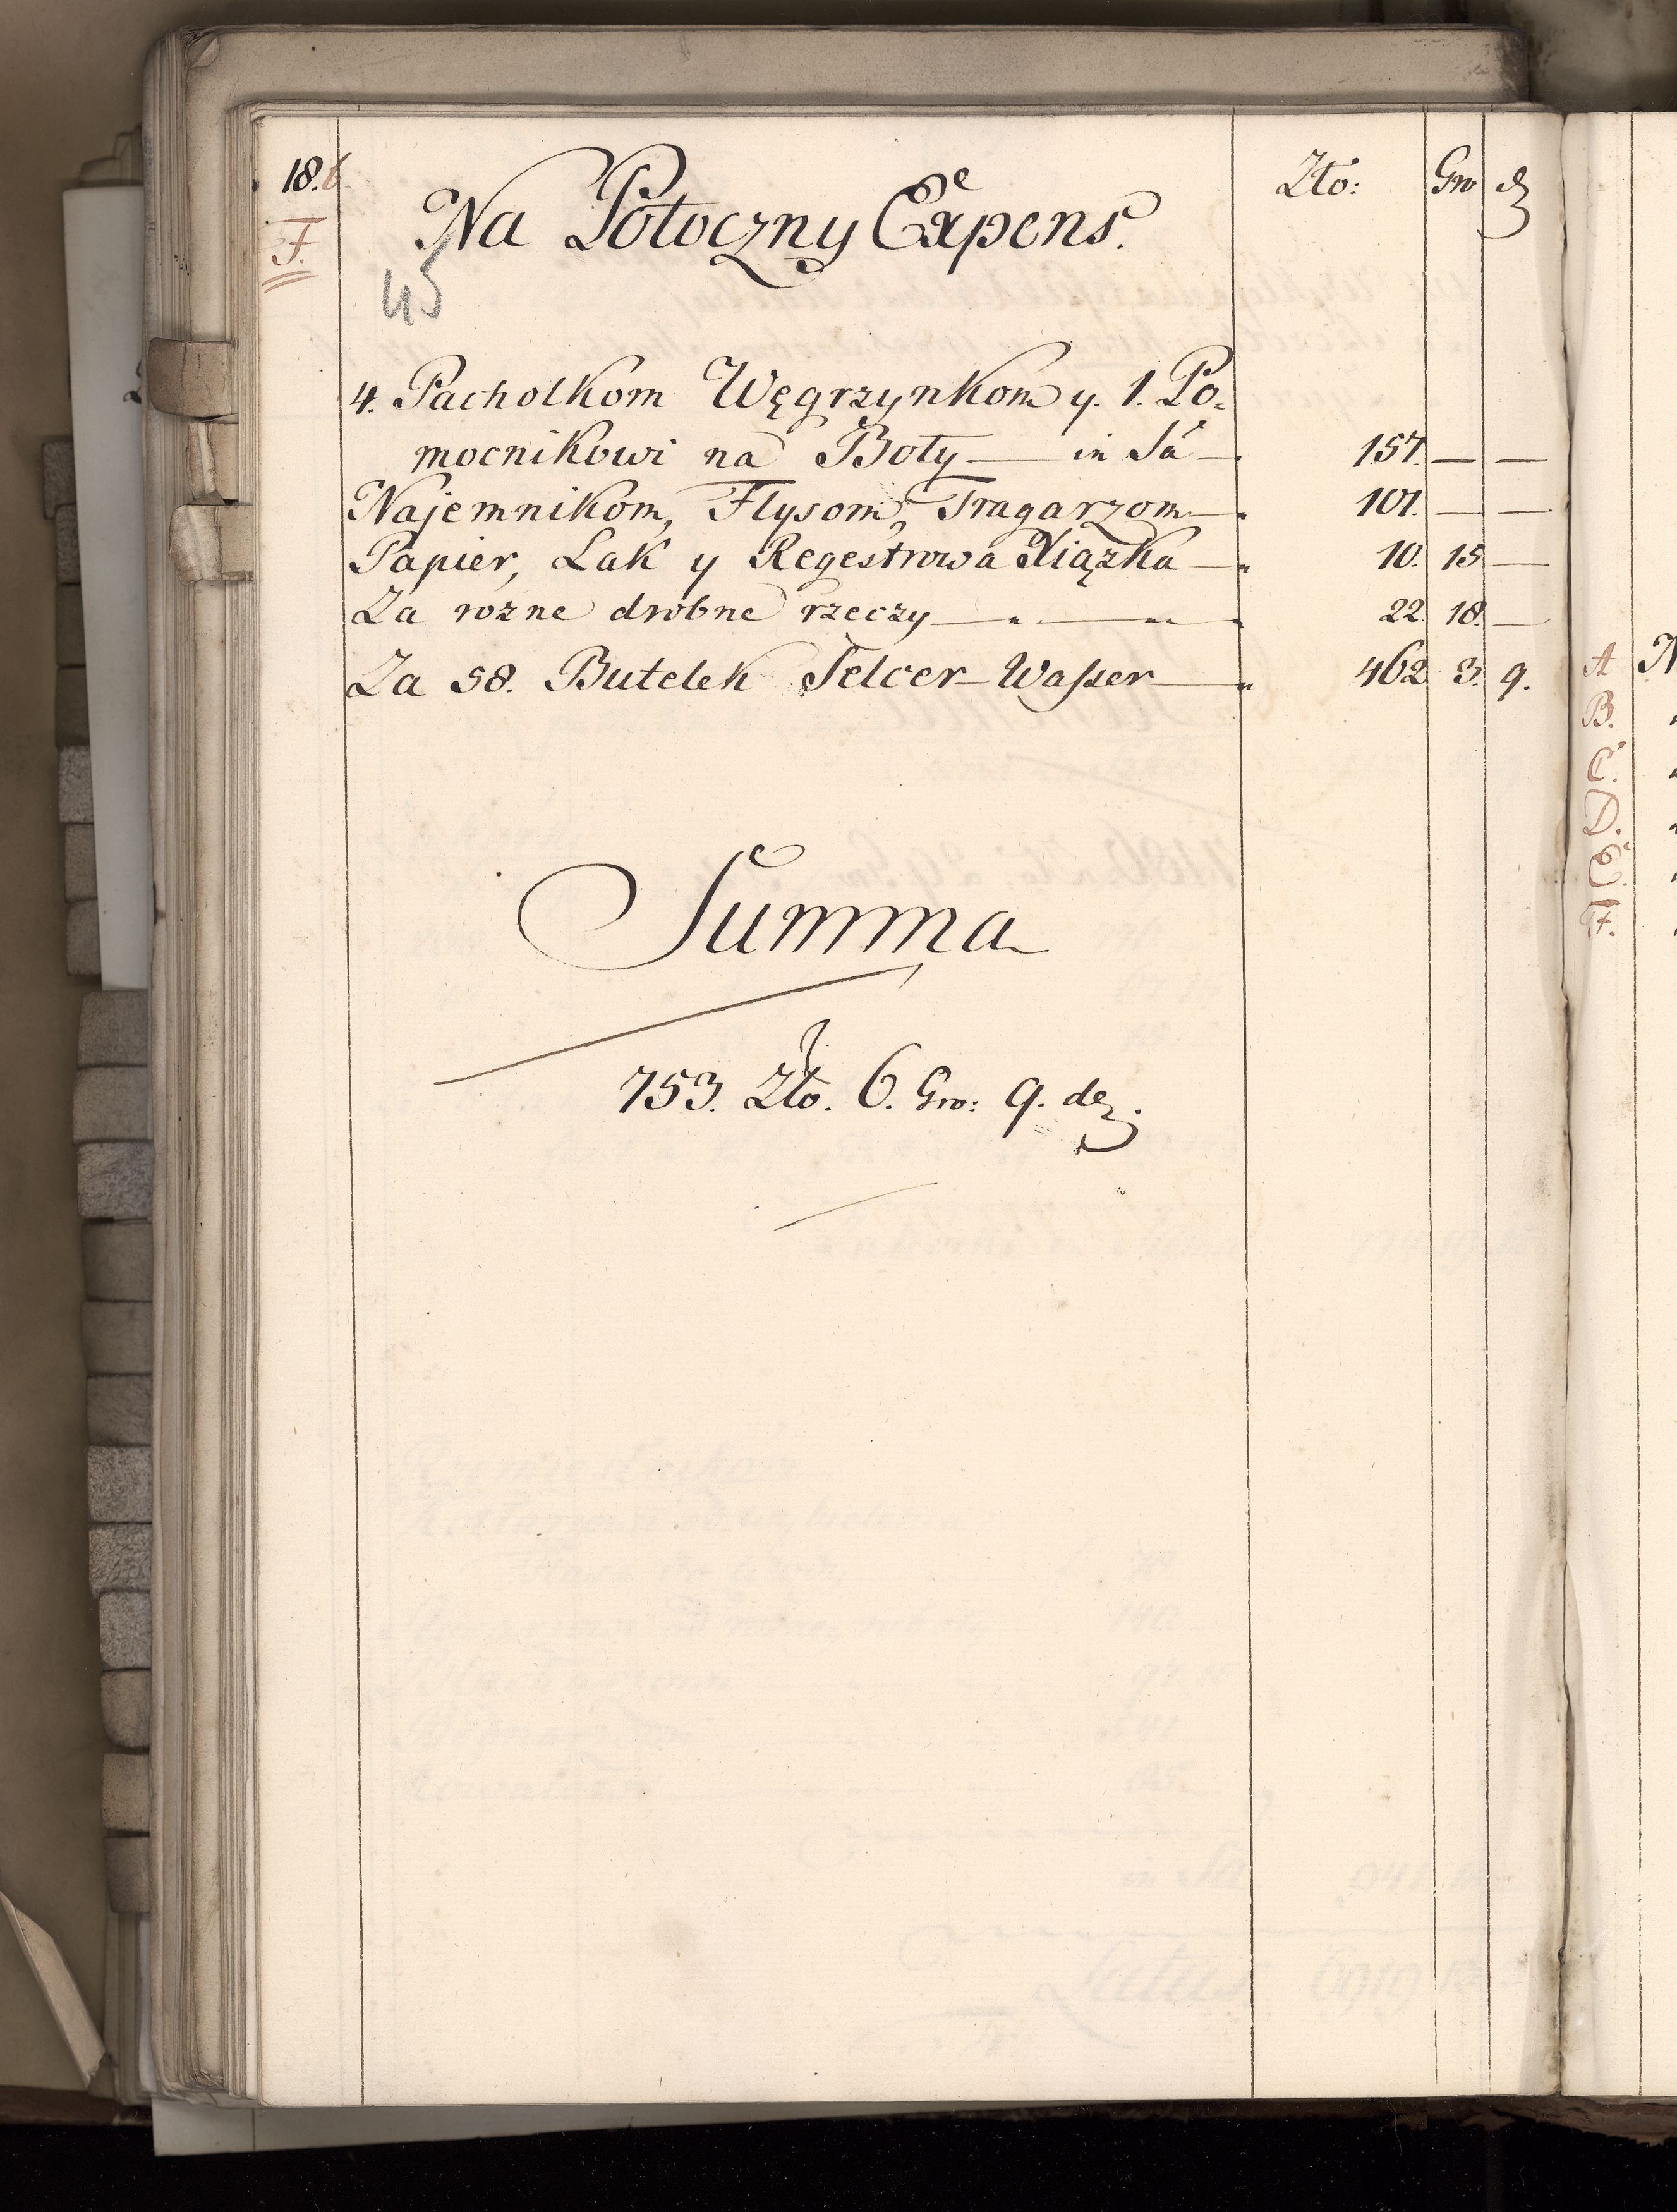 18.b.
F.
Na Potoczny Expens.
Zło: Gro d
45
4. Pacholkom Węgrzynkom y. 1. Po-
mocnikowi na Boty — in Sa — 157. — —
Najemnikom, Flysom, Tragarzom — 101. — —
Papier, Lak y Regestrowa Xiązka — 10. 15 —
Za rozne drobne rzeczy — 22. 18. —
Za 58. Butelek Selcer-Waſser — 462 3. 9.
Summa
753. Zło. 6. Gro: 9. de.
A N
B.
C.
D.
E.
F.